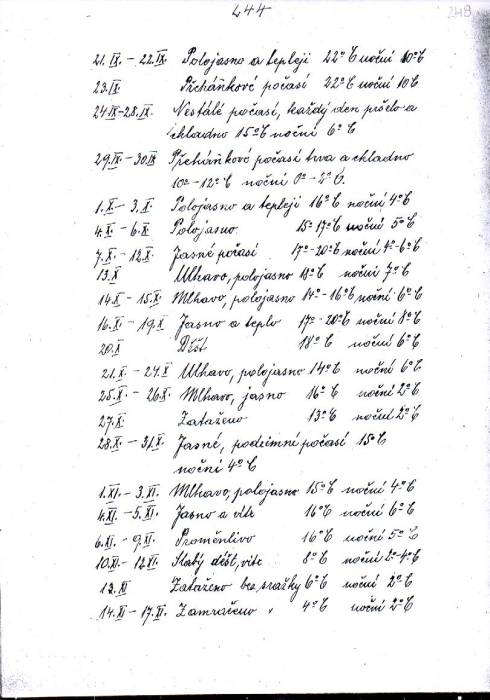 244
248
21. IX. - 22. IX. Polojasno a tepleji 22°C noční 10°C
23. IX. Přeháňkové počasí 22°C noční 10°C
24. IX - 28. IX. Nestálé počasí, každý den pršelo a
chladno 15°C noční 6°C
29. IX. - 30. IX Přeháňkové počasí trva a chladno
10° - 12°C noční
1. X. - 3. X. Polojasno a tepleji 16°C noční 4°C
4. X. - 6. X. Polojasno. 15° 17°C noční 5°C
7. X. - 12. X. Jasné počasí. 17° - 20°C noční 4° - 6°C
13. X Mlhavo, polojasno 18°C noční 7°C
14. X - 15. X. Mlhavo, polojasno 14° - 16°C noční 6°C
16. X. - 19. X Jasno a teplo 17° - 20°C noční 8°C
20. X Déšť 18°C noční 6°C
21. X. - 24. X Mlhavo, polojasno 14°C noční 6°C
25. X. - 26. X. Mlhavo, jasno 16°C noční 2°C
27. X. Zataženo 13°C noční 2°C
28. X. - 31. X. Jasné, podzimní počasí 15°C
noční 4°C
1. XI. - 3. XI. Mlhavo, polojasno 15°C noční 4°C
4. XI. - 5. XI. Jasno a vítr 16°C noční 6°C
6. XI. - 9. XI. Proměnlivo 16°C noční 5°C
10. XI. - 12. XI. Slabý déšť, vítr 8°C noční 2° - 4°C
13. XI Zataženo bez srážky 6°C noční 2°C
14. XI - 17. XI. Zamračeno " 4°C noční 2°C